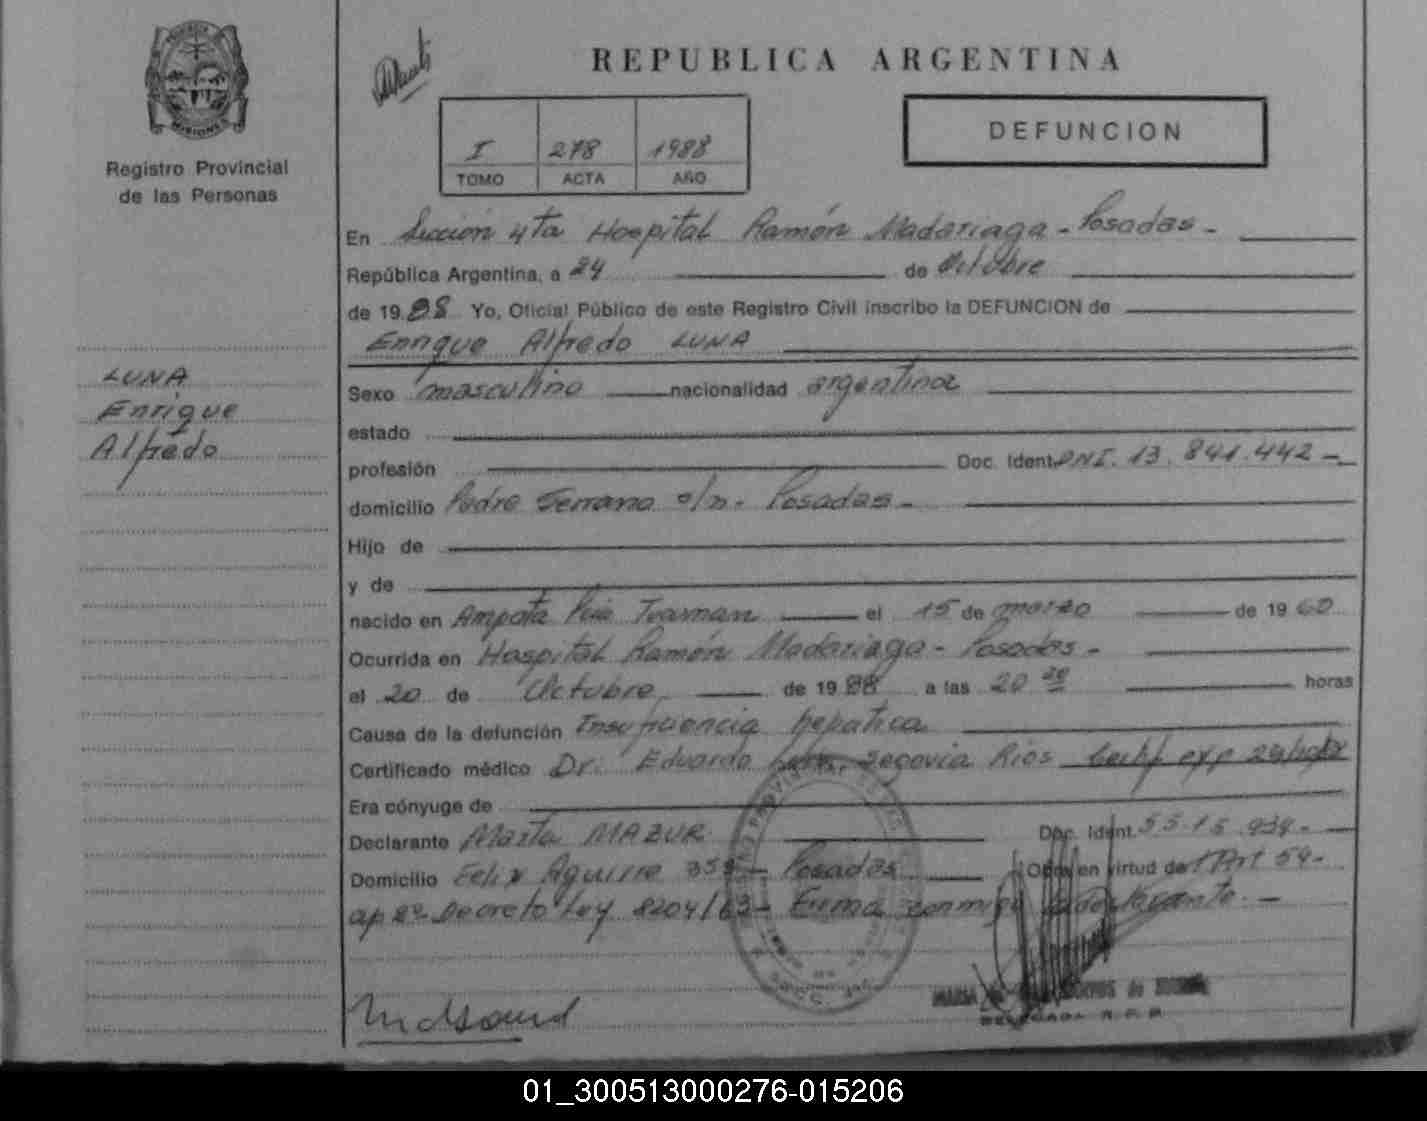 PROVINCIA
MISIONES
Registro Provincial
de las Personas
LUNA
Enrique
Alfredo
REPUBLICA ARGENTINA
I 278 1988
TOMO ACTA AÑO
DEFUNCION
En Sección 4ta Hospital Ramón Madariaga - Posadas -
República Argentina, a 24 de Octubre
de 1988 Yo, Oficial Público de este Registro Civil inscribo la DEFUNCION de
Enrique Alfredo LUNA
Sexo masculino nacionalidad argentina
estado
profesión Doc. Ident. DNI. 13.841.442 -
domicilio Padre Serrano s/n - Posadas -
Hijo de
y de
nacido en el 15 de marzo de 1960
Ocurrida en Hospital Ramón Madariaga - Posadas -
el 20 de Octubre de 1988 a las 20 horas
Causa de la defunción Insuficiencia hepática
Certificado médico Dr. Eduardo Segovia Rios
Era cónyuge de
Declarante Marta MAZUR Doc. Ident. 5.515.939 -
Domicilio Felix Aguirre - Posadas Obra en virtud de Art 54 -
ap 2º Decreto Ley 8204/63 - Firma conmigo
MARIA de
DELEGADA R.P.P.
01_300513000276-015206